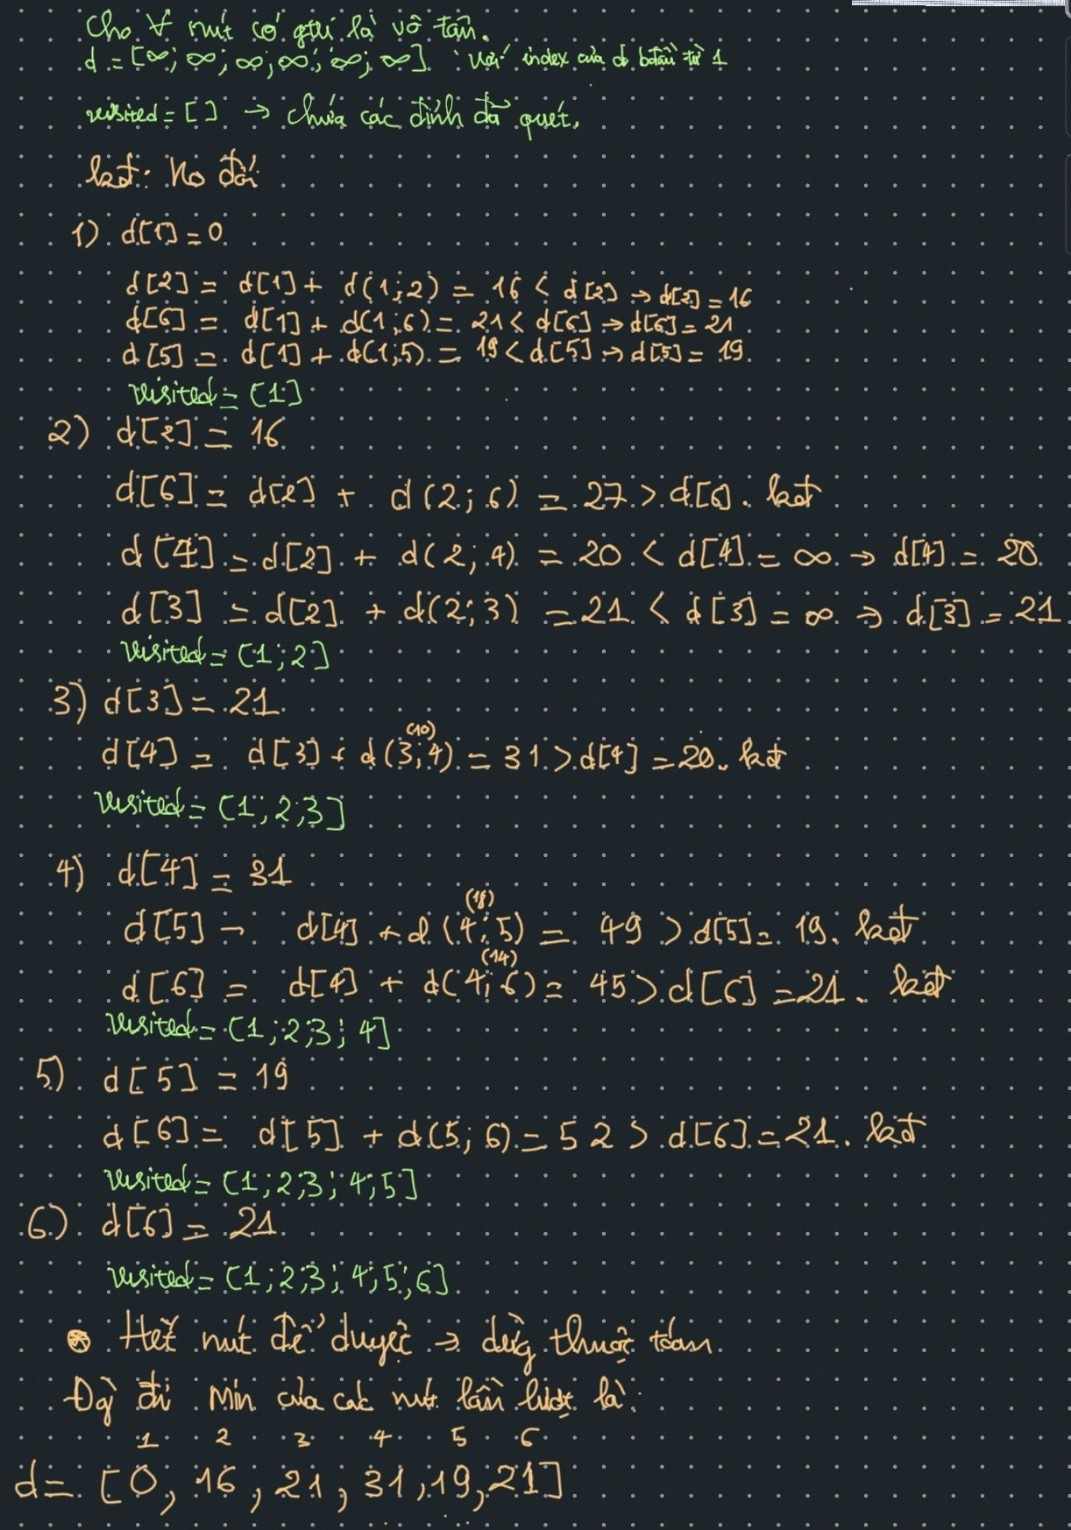 Cho ∀ nút có gtrị là vô tận.
d = [∞; ∞; ∞; ∞; ∞; ∞] với index của d bđầu từ 1
visited = [] → chứa các đỉnh đã quét.
kđ: Ko đổi
1) d[1] = 0
d[2] = d[1] + d(1;2) = 16 < d[2] → d[2] = 16
d[6] = d[1] + d(1;6) = 21 < d[6] → d[6] = 21
d[5] = d[1] + d(1;5) = 19 < d[5] → d[5] = 19.
visited = [1]
2) d[2] = 16
d[6] = d[2] + d(2;6) = 27 > d[6]. kđ
d[4] = d[2] + d(2;4) = 20 < d[4] = ∞ → d[4] = 20
d[3] = d[2] + d(2;3) = 21 < d[3] = ∞ → d[3] = 21
visited = [1;2]
3) d[3] = 21
(10)
d[4] = d[3] + d(3;4) = 31 > d[4] = 20. kđ
visited = [1;2;3]
4) d[4] = 31
(18)
d[5] = d[4] + d(4;5) = 49 > d[5] = 19. kđ
(14)
d[6] = d[4] + d(4;6) = 45 > d[6] = 21. kđ
visited = [1;2;3;4]
5) d[5] = 19
d[6] = d[5] + d(5;6) = 52 > d[6] = 21. kđ
visited = [1;2;3;4;5]
6) d[6] = 21
visited = [1;2;3;4;5;6]
Hết nút để duyệt → dừng thuật toán
đi Min của các nút lần lượt là:
1 2 3 4 5 6
d = [0, 16, 21, 31, 19, 21]